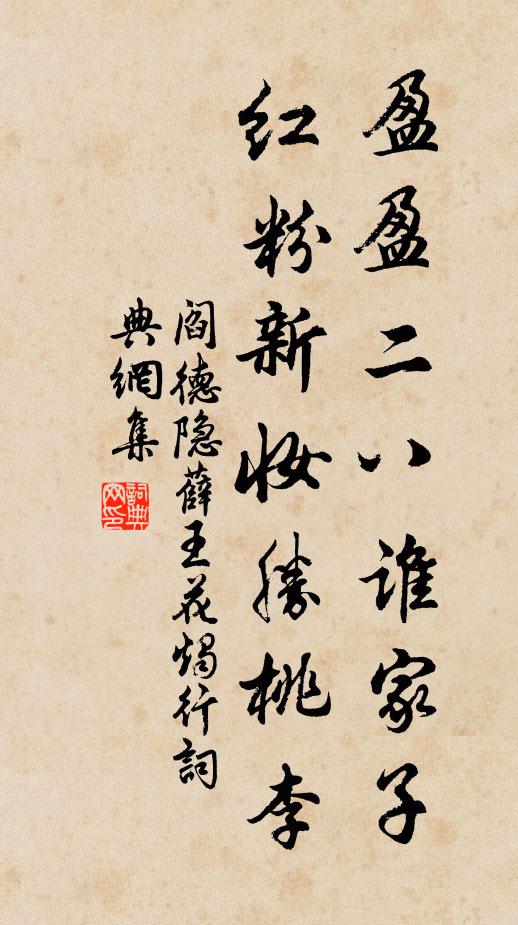 盈盈二八谁家子
红粉新妆勝桃李
阎德隐薛王花烛行詞
典網集
詞典
网印